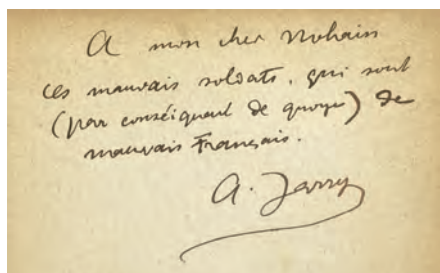 A mon cher Nohain
ces mauvais soldats, qui sont
(par conséiquent de quoye) de
mauvais Français.
A. Jarry